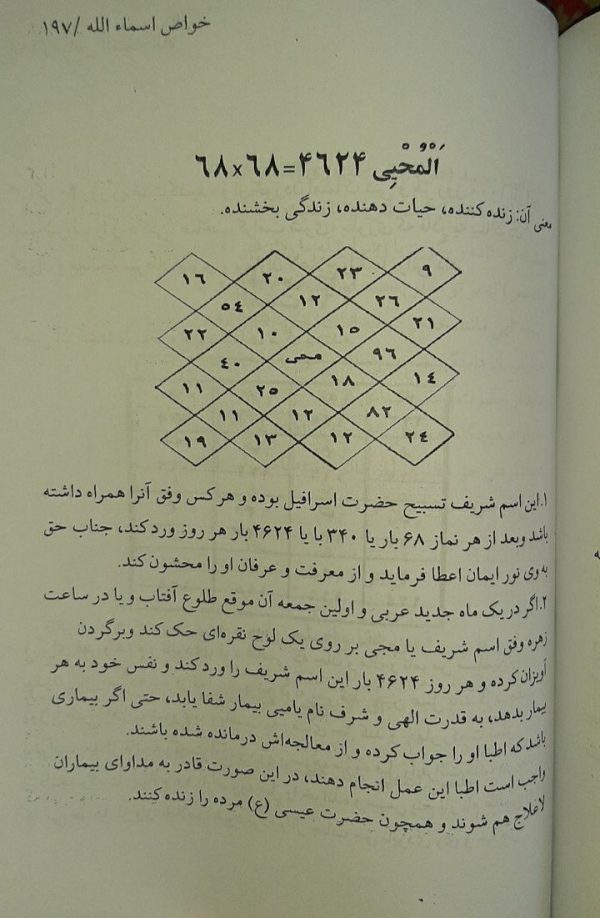 خواص اسماء الله /۱۹۷
اَلْمُحْيِي ۴۶۲۴=۶۸×۶۸
معنی آن: زنده کننده، حیات دهنده، زندگی بخشنده.
۱۶ ۲۰ ۲۳ ۹
۵۴ ۱۲ ۲۶
۲۲ ۱۰ ۱۵ ۲۱
۴۰ محی ۹۶
۱۱ ۲۵ ۱۸ ۱۴
۱۱ ۱۲ ۸۲
۱۹ ۱۳ ۱۲ ۲۴
۱.این اسم شریف تسبیح حضرت اسرافیل بوده و هرکس وفق آنرا همراه داشته
باشد وبعد از هر نماز ۶۸ بار یا ۳۴۰ با یا ۴۶۲۴ بار هر روز ورد کند، جناب حق
به وی نور ایمان اعطا فرماید و از معرفت و عرفان او را محشون کند.
۲.اگر در یک ماه جدید عربی و اولین جمعه آن موقع طلوع آفتاب و یا در ساعت
زهره وفق اسم شریف یا مجی بر روی یک لوح نقره‌ای حک کند وبرگردن
آویزان کرده و هر روز ۴۶۲۴ بار این اسم شریف را ورد کند و نفس خود به هر
بیمار بدهد، به قدرت الهی و شرف نام یامیی بیمار شفا یابد، حتی اگر بیماری
باشد که اطبا او را جواب کرده و از معالجه‌اش درمانده شده باشند.
واجب است اطبا این عمل انجام دهند، در این صورت قادر به مداوای بیماران
لاعلاج هم شوند و همچون حضرت عیسی (ع) مرده را زنده کنند.